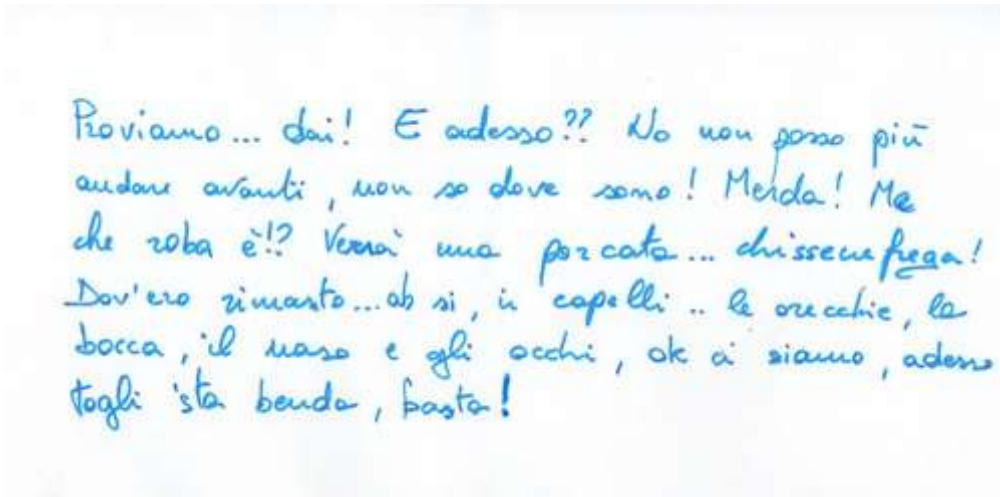 Proviamo... dai! E adesso?? No non posso più
andare avanti, non so dove sono! Merda! Ma
che roba è!? Verrà una porcata... chissenefrega!
Dov'ero rimasto... ah si, i capelli.. le orecchie, la
bocca, il naso e gli occhi, ok ci siamo, adesso
togli 'sta benda, basta!